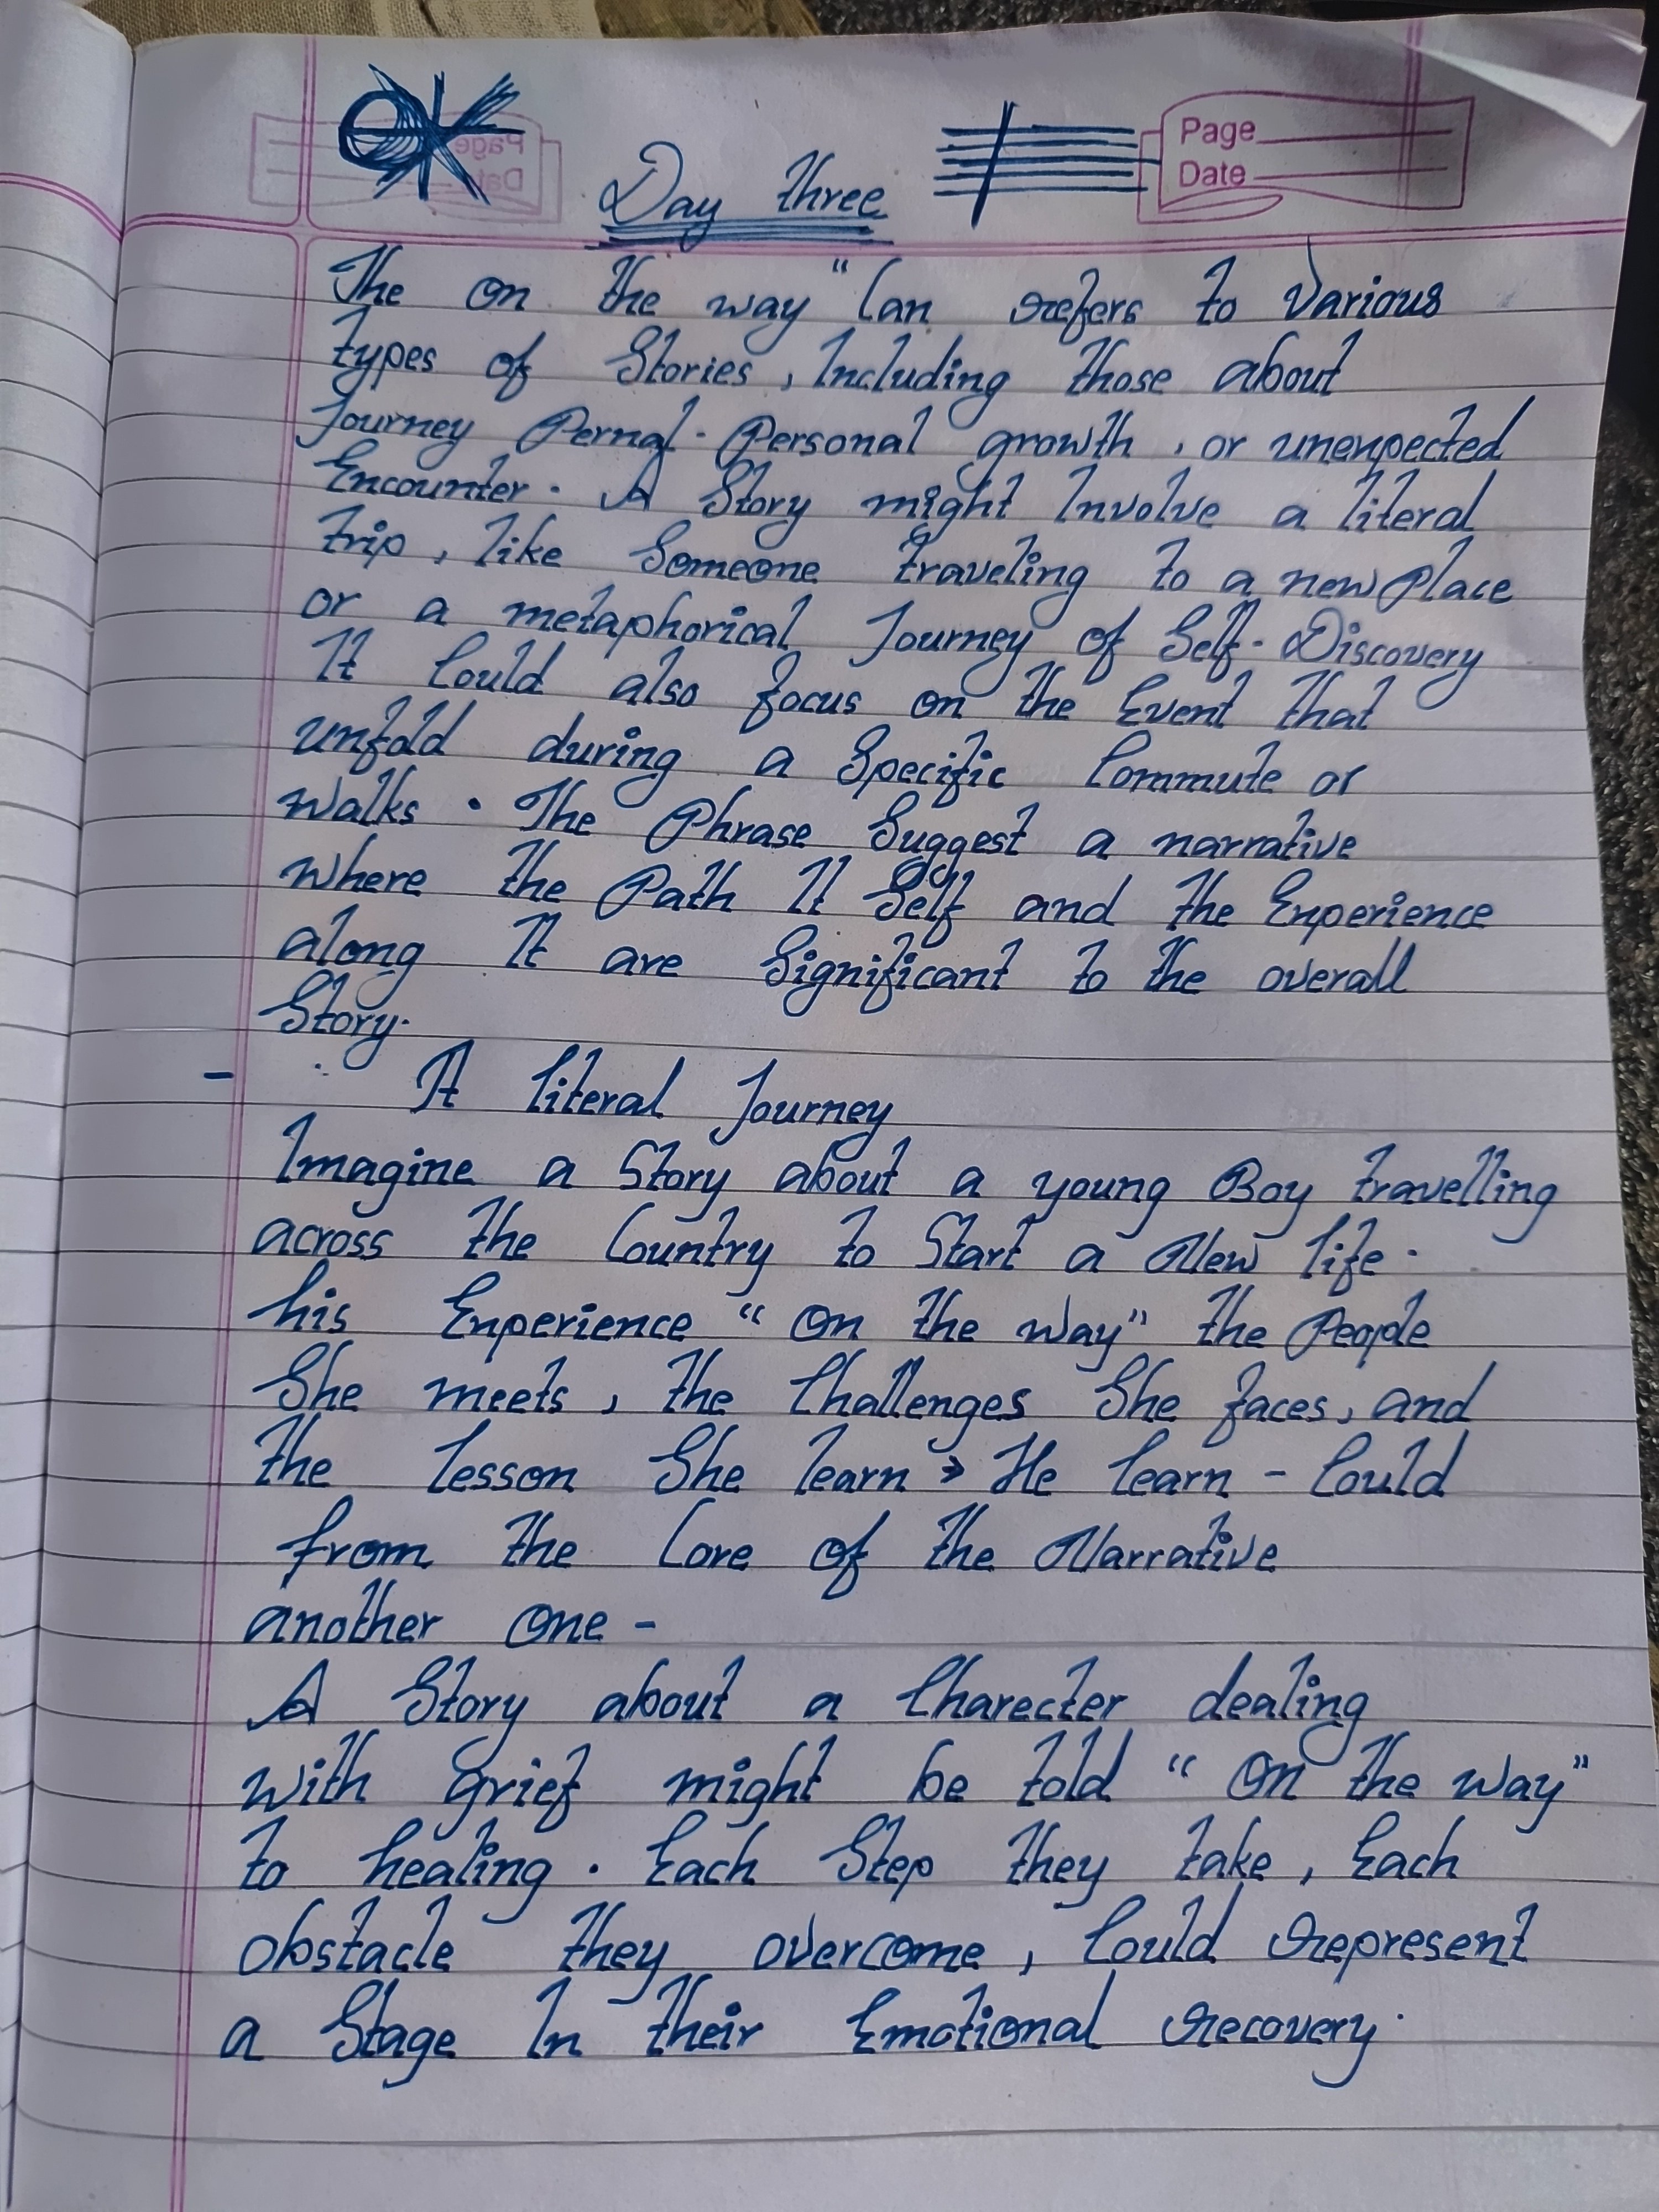 OK
Page
Date
Day three
The on the way " Can refers to Various
types of Stories, Including those about
Journey Pernal. Personal growth, or unexpected
Encounter. A Story might Involve a literal
trip, like Someone traveling to a new Place
or a metaphorical Journey of Self-Discovery
It Could also focus on the Event that
unfold during a Specific Commute or
walks. The Phrase Suggest a narrative
where the Path It Self and the Experience
along It are Significant to the overall
Story.
- A literal Journey
Imagine a Story about a young Boy travelling
across the Country to Start a New life.
his Experience " on the way" the People
She meets, the Challenges She faces, and
the lesson She learn > He learn - Could
from the Core of the Narrative
another one -
A Story about a Charecter dealing
with grief might be told " on the way"
to healing. Each Step they take, Each
obstacle they overcome, Could represent
a Stage In their Emotional recovery.